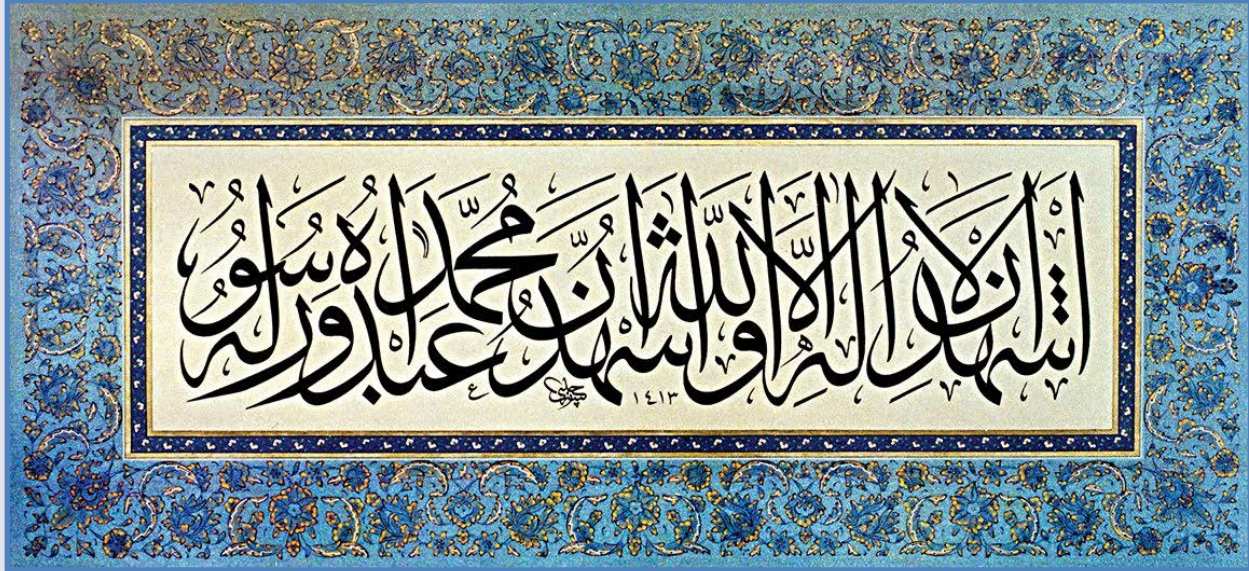 اشهد ان لا اله الا الله و اشهد ان محمدا عبده ورسوله
١٤١٣